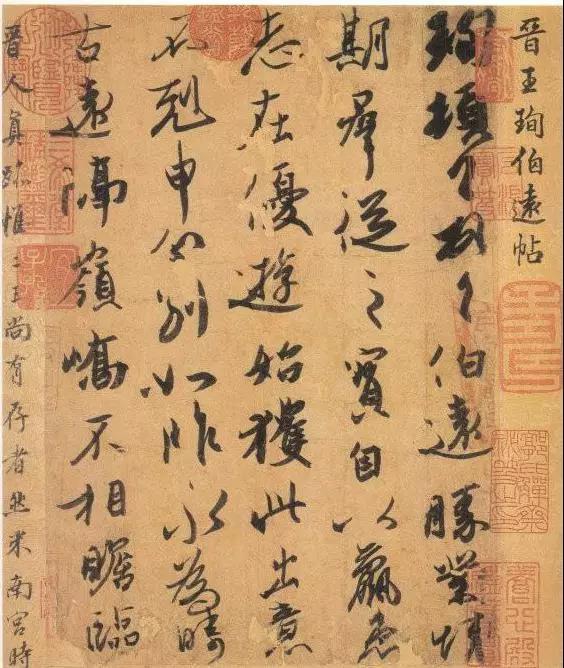 晋王珣伯遠帖
珣頓首頓首伯遠勝業情
期羣從之寶自以羸患
志在優遊始獲此出意
不剋申分别如昨永為疇
古遠隔嶺嶠不相瞻臨
晋人真跡惟二王尚有存者然米南宫時